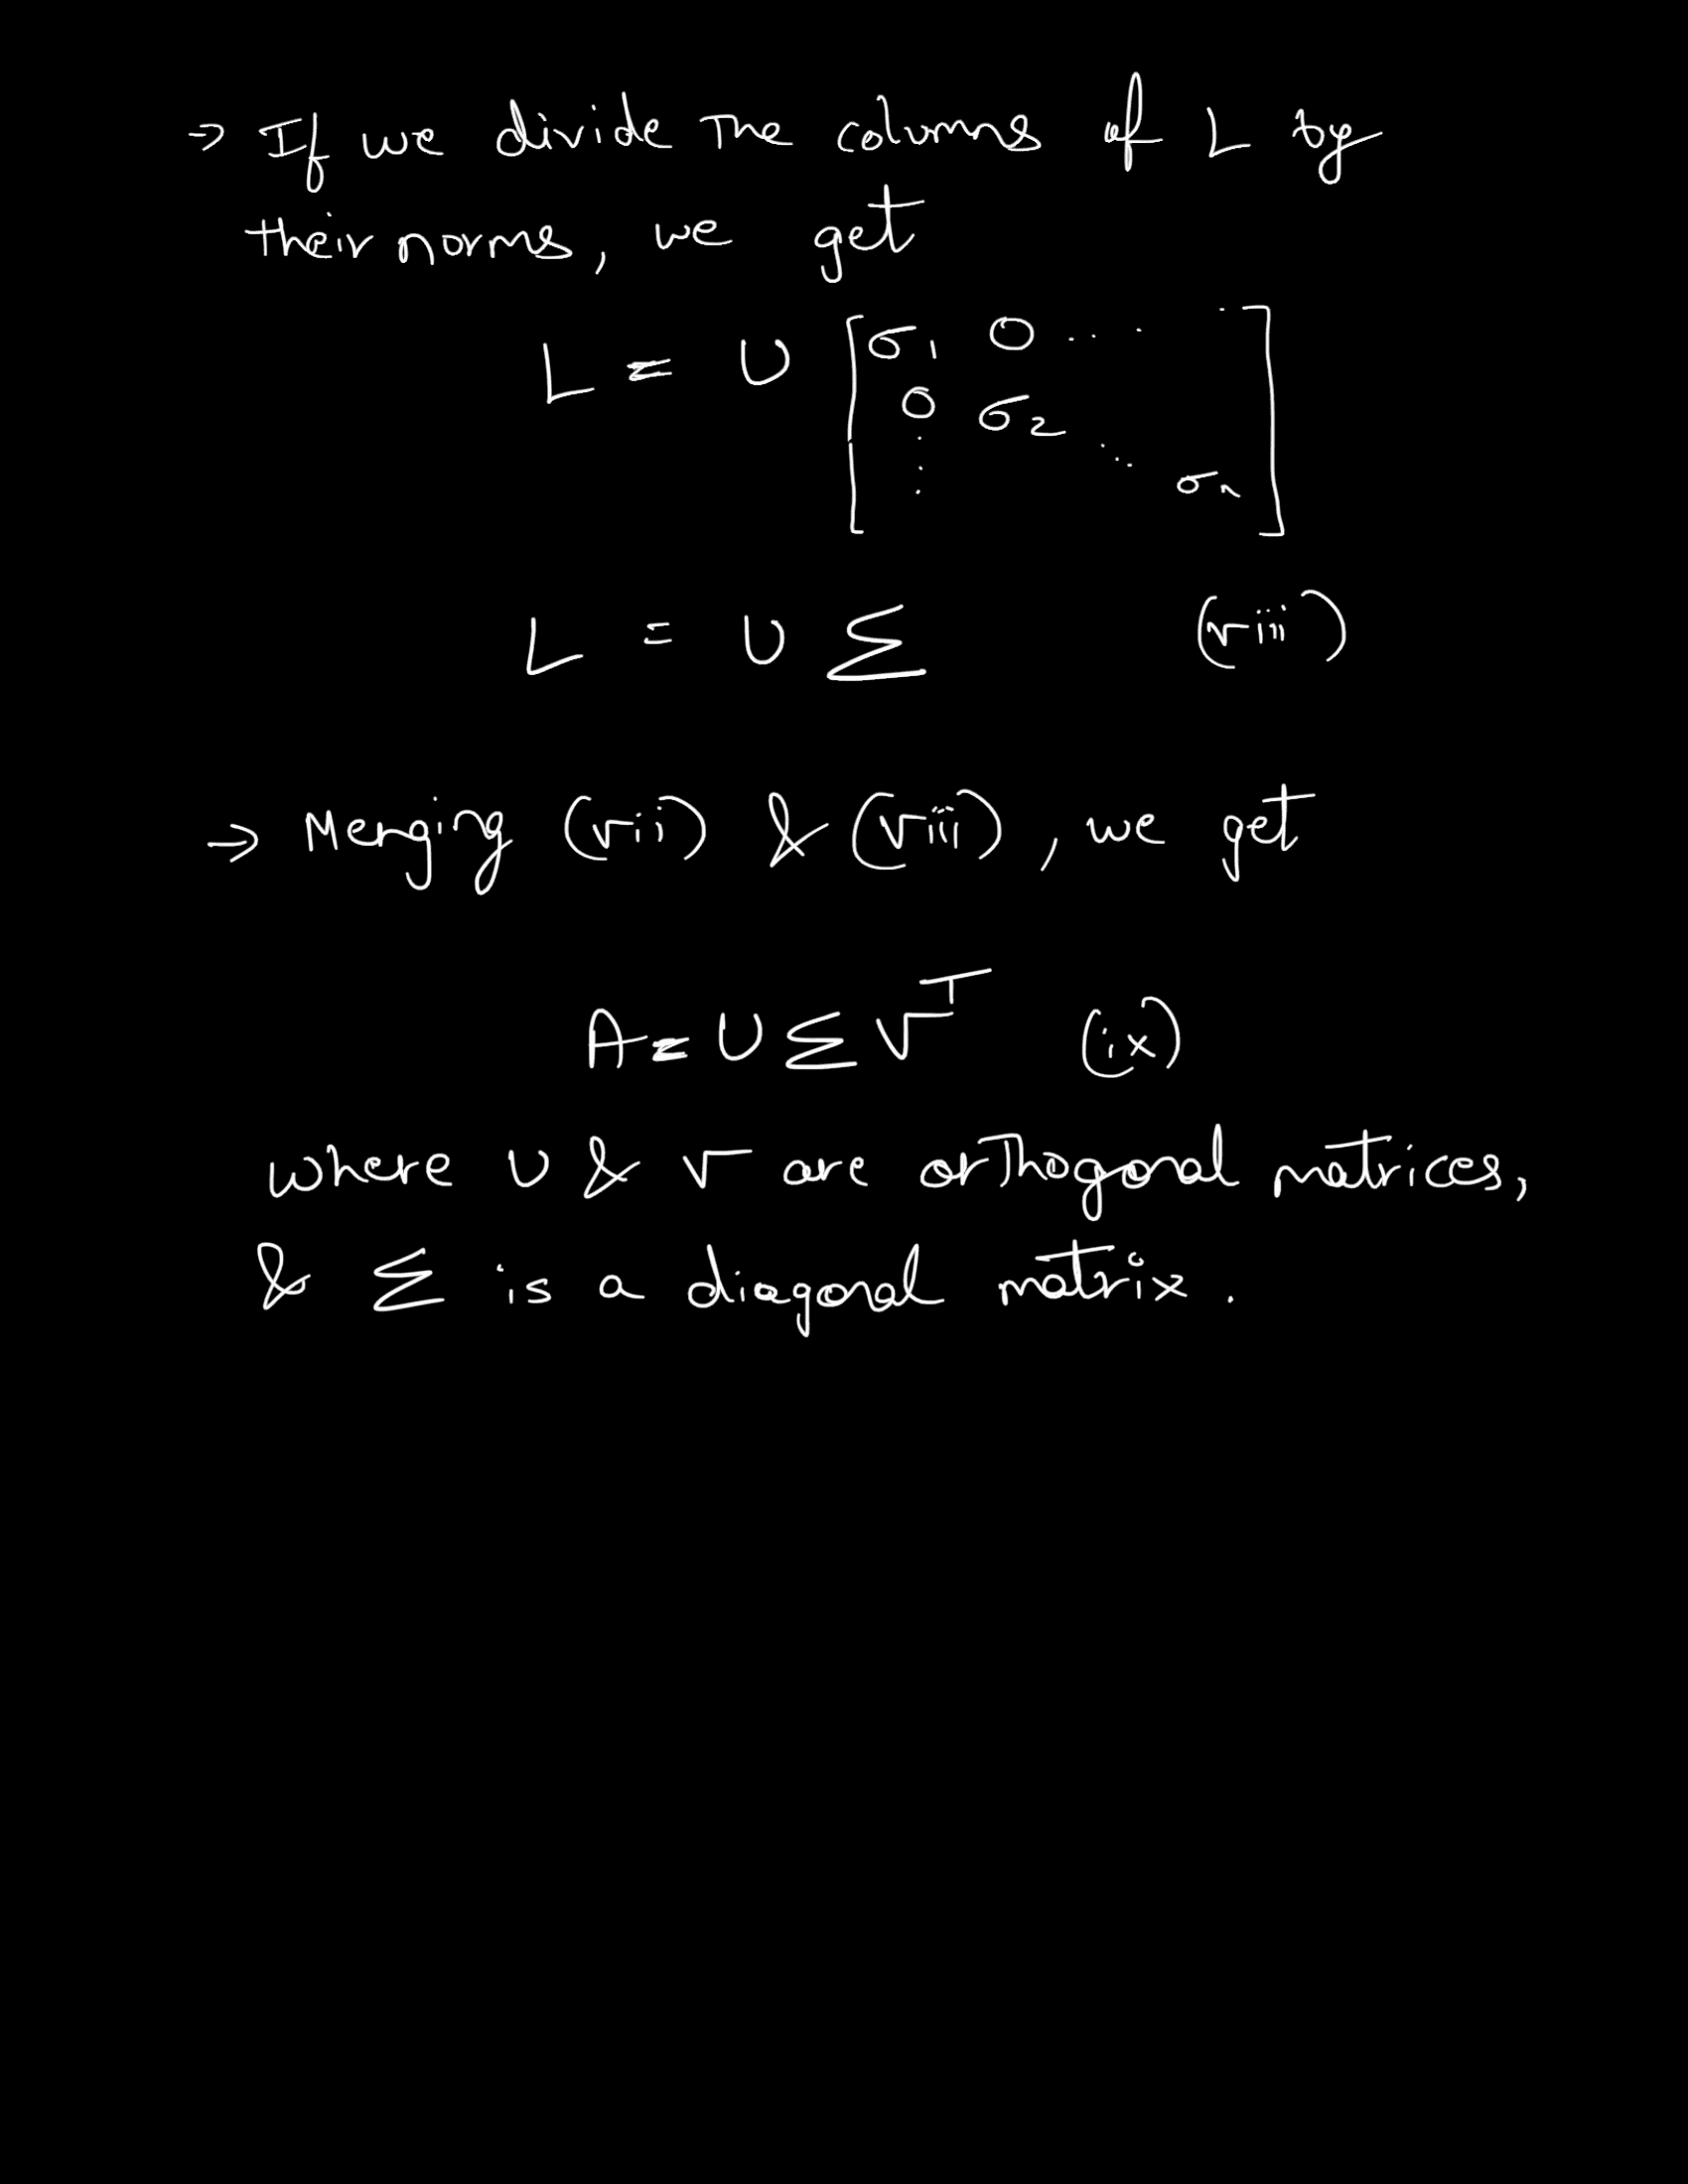 ⇒ If we divide the columns of L by
their norms, we get
L = U [σ₁ 0 ...
0 σ₂ ⋱
⋮ σₙ]
L = U Σ (viii)
⇒ Merging (vii) & (viii), we get
A = U Σ Vᵀ (ix)
where U & V are orthogonal matrices,
& Σ is a diagonal matrix.